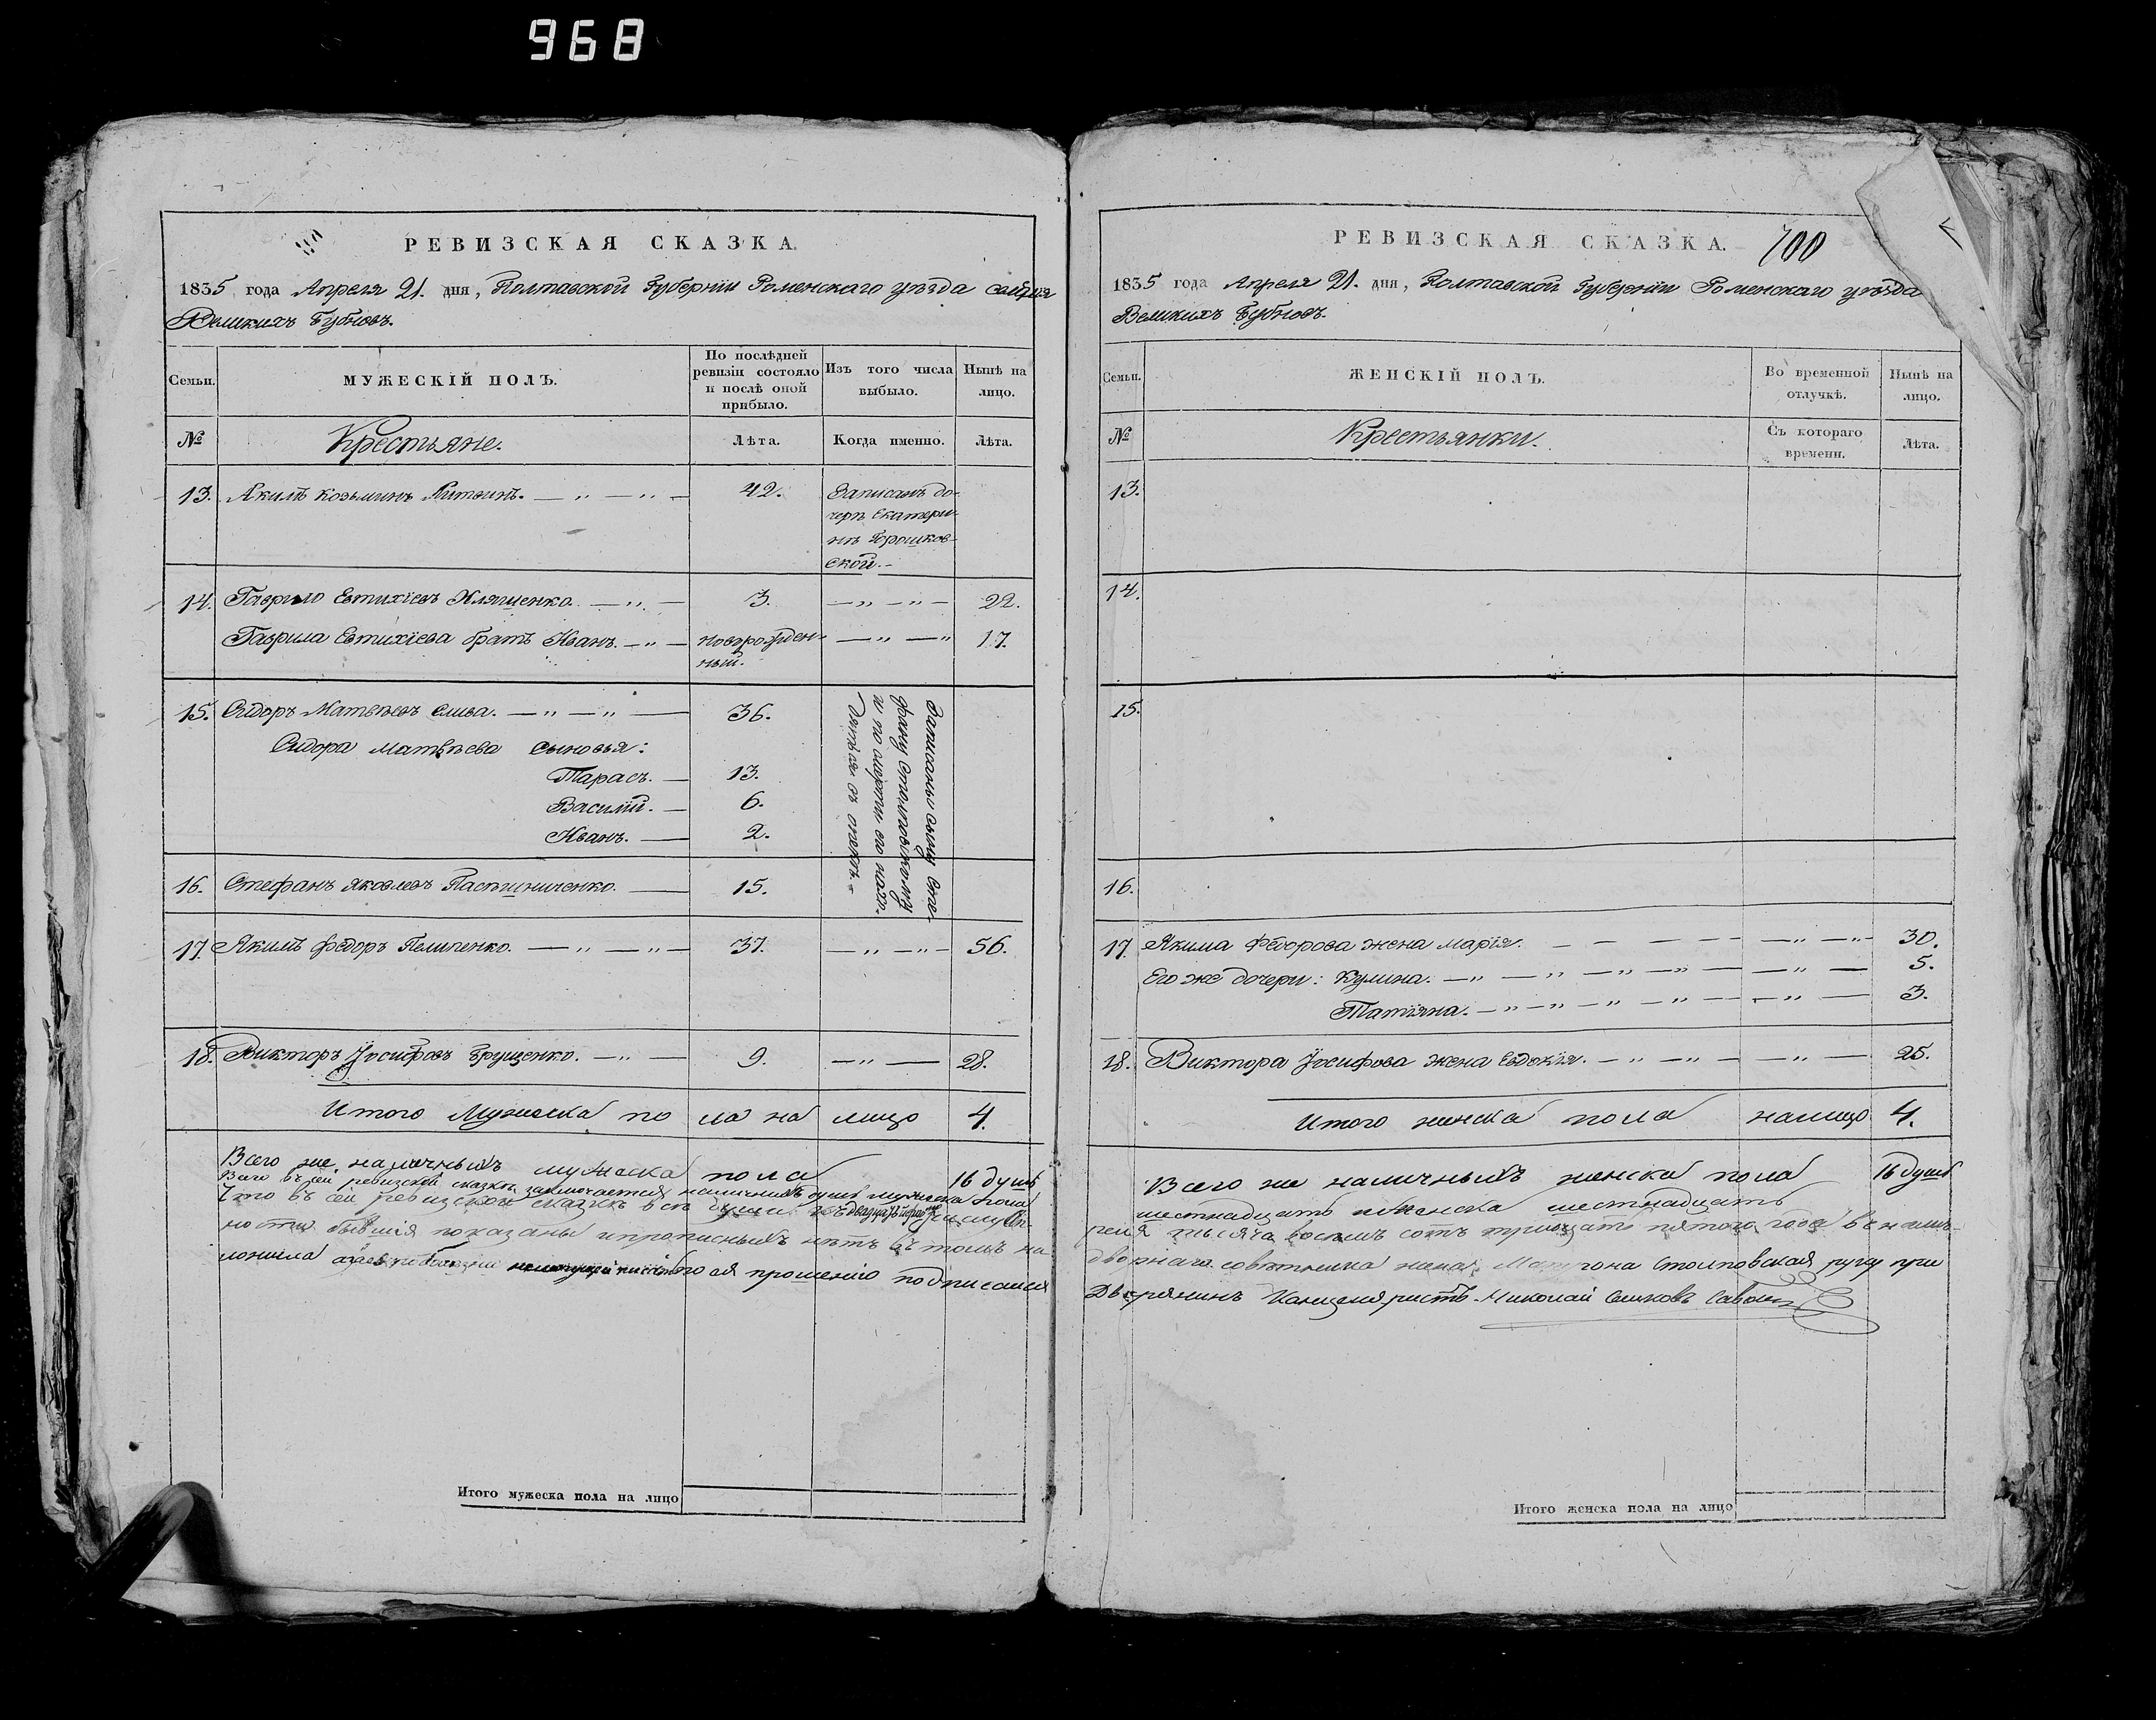 968
РЕВИЗСКАЯ СКАЗКА.
1835 года Апреля 21. дня, Полтавской Губерніи Роменскаго уѣзда селенія
Великихъ Бубновъ.
Семьи.
МУЖЕСКІЙ ПОЛЪ.
По послѣдней ревизіи состояло и послѣ оной прибыло.
Изъ того числа выбыло.
Нынѣ на лицо.
№
Крестьяне.
Лѣта.
Когда именно.
Лѣта.
13. Якимъ Козьминъ Литвинъ. — „ — „ — 42. Записанъ до-
черѣ Екатери-
нѣ Горошков-
ской.-
14. Гаврило Евтихіевъ Клященко. — „ — 3. — „ — „ — 22.
Гаврила Евтихіева братъ Иванъ. — „ — новорожден- — „ — „ 17.
ный.
15. Сидоръ Матвѣевъ Слива. — „ — „ — 36.
Сидора Матвѣева сыновья:
Тарасъ. — 13.
Василій. — 6.
Иванъ. — 2.
16. Стефанъ Яковлевъ Пасѣшниченко. — 15.
Записаны сыну Сте-
фану Столповскому
и по смерти его нахо-
17. Якимъ Федоръ Пелипенко. — „ — „ — 37. — „ — „ — 56.
18. Викторъ Іосифовъ Грущенко. — „ — 9. — „ — 28.
Итого Мужеска пола на лицо 4.
Всего же наличныхъ мужеска пола 16 душъ
Всего въ сей ревизской сказкѣ заключается наличныхъ душъ мужеска пола
Что въ сей ревизской сказкѣ всѣ души
ности бывшія показаны и прописныхъ нѣтъ въ томъ на
ложила по ея прошенію подписался
Итого мужеска пола на лицо
РЕВИЗСКАЯ СКАЗКА.
700
1835 года Апреля 21. дня, Полтавской Губерніи Роменскаго уѣзда
Великихъ Бубновъ.
Семьи.
ЖЕНСКІЙ ПОЛЪ.
Во временной отлучкѣ.
Нынѣ на лицо.
№
Крестьянки.
Съ котораго времени.
Лѣта.
13.
14.
15.
16.
17. Якима Федорова жена Марія. — — — — — „ — „ 30.
Его же дочери: Кулина. — „ — „ — „ — „ — — „ — 5.
Татіяна. — „ — „ — „ — „ — — „ — 3.
18. Виктора Іосифова жена Евдокія. — „ — „ — — „ — 25.
Итого женска пола налицо 4.
Всего же наличныхъ женска пола 16 душъ
шестнадцать женска шестнадцать
реля тысяча восемь сотъ тридцать пятого года
дворнаго совѣтника жена Столповская руку при
Дворянинъ Канцеляристъ Николай
Итого женска пола на лицо